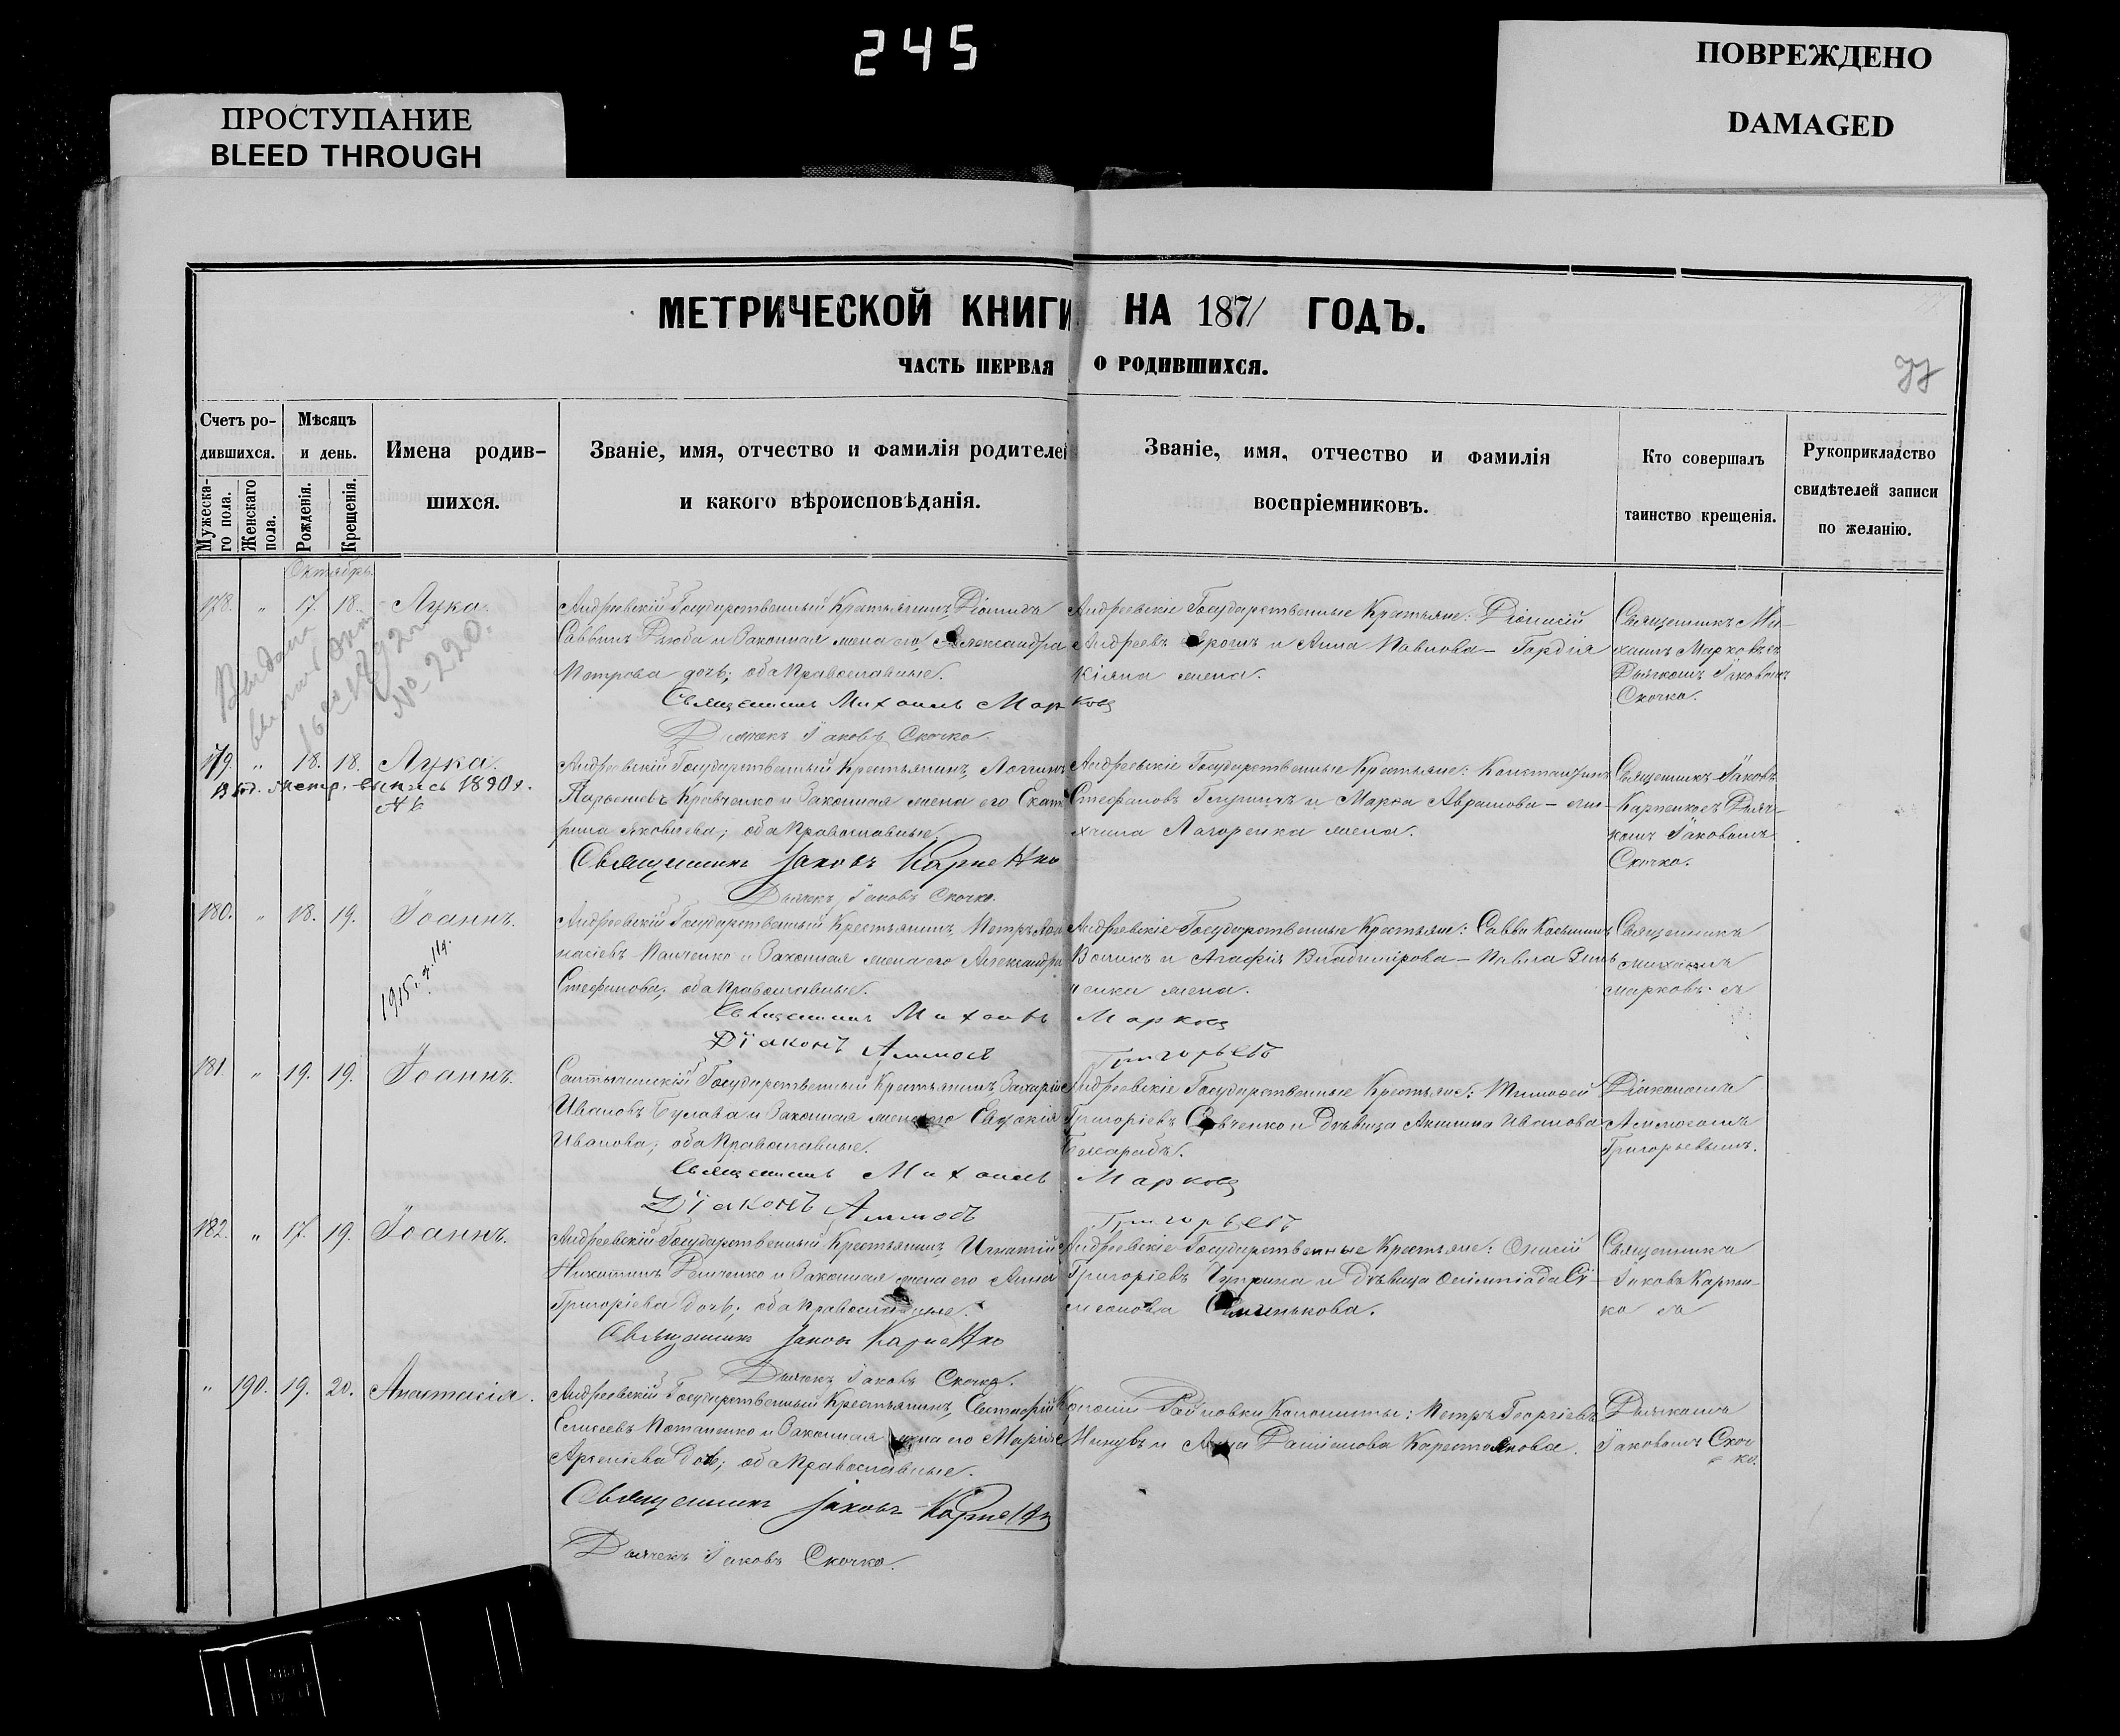 245
ПОВРЕЖДЕНО
DAMAGED
ПРОСТУПАНИЕ
BLEED THROUGH
МЕТРИЧЕСКОЙ КНИГИ НА 1871 ГОДЪ.
ЧАСТЬ ПЕРВАЯ О РОДИВШИХСЯ.
77
Счетъ ро-
дившихся.
Мужеска-
го пола.
Женскаго
пола.
Мѣсяцъ
и день.
Рожденія.
Крещенія.
Имена родив-
шихся.
Званіе, имя, отчество и фамилія родителей
и какого вѣроисповѣданія.
Званіе, имя, отчество и фамилія
воспріемниковъ.
Кто совершалъ
таинство крещенія.
Рукоприкладство
свидѣтелей записи
по желанію.
Октябрь
178. " 17. 18. Лука.
Андреевскій Государственный Крестьянинъ
Саввинъ Дзюба и Законная жена его, Александра
Петрова дочь; оба Православные.
Священникъ Михаилъ Марковъ
Дьячекъ Іаковъ Скочко.
Андреевскіе Государственные Крестьяне: Діонисій
Андреевъ и Анна Павлова – Гордія
жена.
Священникъ Ми-
хаилъ Марковъ съ
Дьячкомъ Іаковомъ
Скочко.
1892
№ 220.
179. " 18. 18. Лука.
метр. выпись 1890 г.
Андреевскій Государственный Крестьянинъ, Логгинъ
Парѳеніевъ Кравченко и Законная жена его Екате
рина Яковлева; оба Православные.
Священникъ Іаковъ Карпенко
Дьячекъ Іаковъ Скочко.
Андреевскіе Государственные Крестьяне: Константинъ
Стефановъ и Марѳа Аврамова –
жена.
Священникъ Іаковъ
Карпенко съ Дьяч-
комъ Іаковомъ
Скочко.
180. " 18. 19. Іоаннъ.
1915 г.
Андреевскій Государственный Крестьянинъ, Петръ Аѳа
насіевъ Панченко и Законная жена его Александра
Стефанова; оба Православные.
Священникъ Михаилъ Марковъ
Діаконъ Аммосъ Григорьевъ
Андреевскіе Государственные Крестьяне: Савва Косминъ
Воликъ и Агафія Владимірова – Павла
жена.
Священникъ
Михаилъ
Марковъ съ
181. " 19. 19. Іоаннъ.
Государственный Крестьянинъ, Захарія
Ивановъ Булава и Законная жена его Евдокія
Иванова; оба Православные.
Священникъ Михаилъ Марковъ
Діаконъ Аммосъ Григорьевъ
Андреевскіе Государственные Крестьяне: Тимоѳей
Григоріевъ Савченко и Дѣвица Акилина Иванова
Діакономъ
Аммосомъ
Григорьевымъ.
182. " 17. 19. Іоаннъ.
Андреевскій Государственный Крестьянинъ, Игнатій
Никитинъ Демченко и Законная жена его Анна
Григоріева дочь; оба Православные.
Священникъ Іаковъ Карпенко
Дьячекъ Іаковъ Скочко.
Андреевскіе Государственные Крестьяне: Онисій
Григоріевъ Чуприна и Дѣвица Олимпіада Сѵ-
меонова
Священникъ
Іаковъ Карпен-
ко съ
" 190. 19. 20. Анастасія.
Андреевскій Государственный Крестьянинъ, Евстафій
Елисеевъ Потапенко и Законная жена его Марія
Арсеніева дочь; оба Православные.
Священникъ Іаковъ Карпенко
Дьячекъ Іаковъ Скочко.
Колоніи Колонисты: Петръ Георгіевъ
и Анна
Дьячкомъ
Іаковомъ Скоч-
ко.